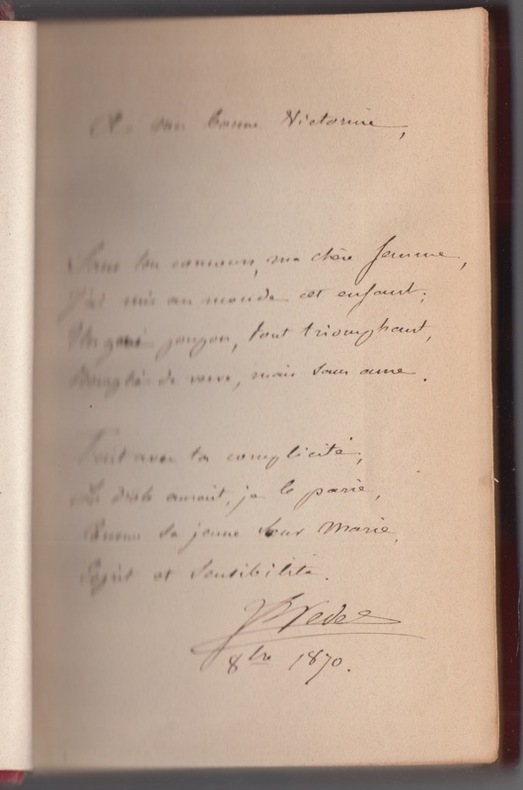 A ma bonne Victorine,
Sans ton concours, ma chère femme,
J'ai mis au monde cet enfant;
Un joujou, tout triomphant,
de verve, mais sans ame.
Fait avec ta complicité,
Le drole aurait, je le parie,
Comme sa jeune sœur Marie,
Esprit et Sensibilité.
8bre 1870.